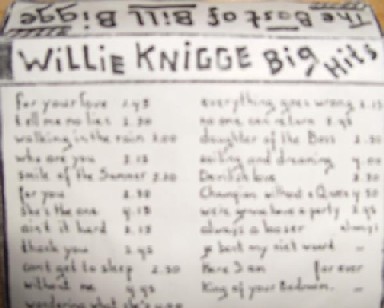 The Best of Bill Bigge
WILLIE KNIGGE Big Hits
for your love 2.45
tell me no lies 2.30
walking in the rain 3.00
who are you 2.15
smile of the Summer 2.30
for you 2.30
she's the one 4.15
ain't it hard 2.15
thank you 2.45
can't get to sleep 2.30
without me 4.45
wondering what she's
everything goes wrong 2.15
no one can return 2.45
daughter of the Boss 2.30
sailing and dreaming 4.00
Devilish love 2.30
Champion without a Queen 4.30
we're gonna have a party 2.45
always a loser always
go beat my
Here I am for ever
King of your Bedroom